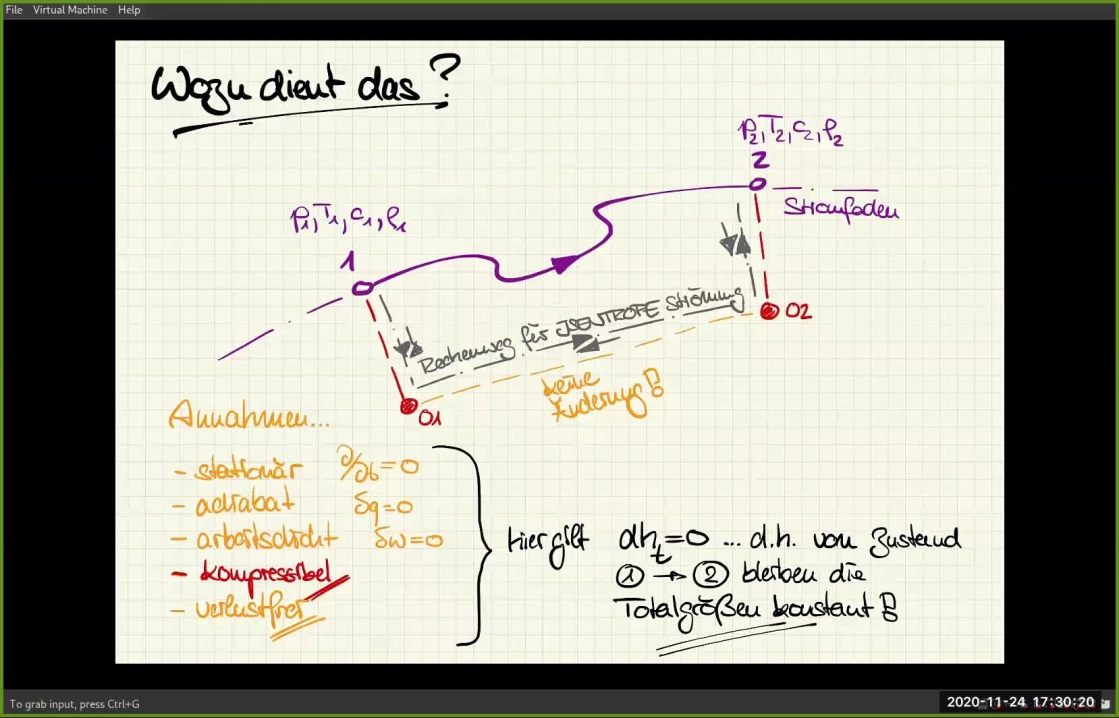 File Virtual Machine Help
Wozu dient das?
p₂, T₂, c₂, ρ₂
2
Stromfaden
p₁, T₁, c₁, ρ₁
1
Rechenweg für ISENTROPE Strömung
02
keine
Änderung!
01
Annahmen...
- stationär ∂/∂t = 0
- adiabat δq = 0
- arbeitsdicht δw = 0
- kompressibel
- verlustfrei
Hier gilt dhₜ = 0 ... d.h. vom Zustand
① → ② bleiben die
Totalgrößen konstant!
To grab input, press Ctrl+G
2020-11-24 17:30:20